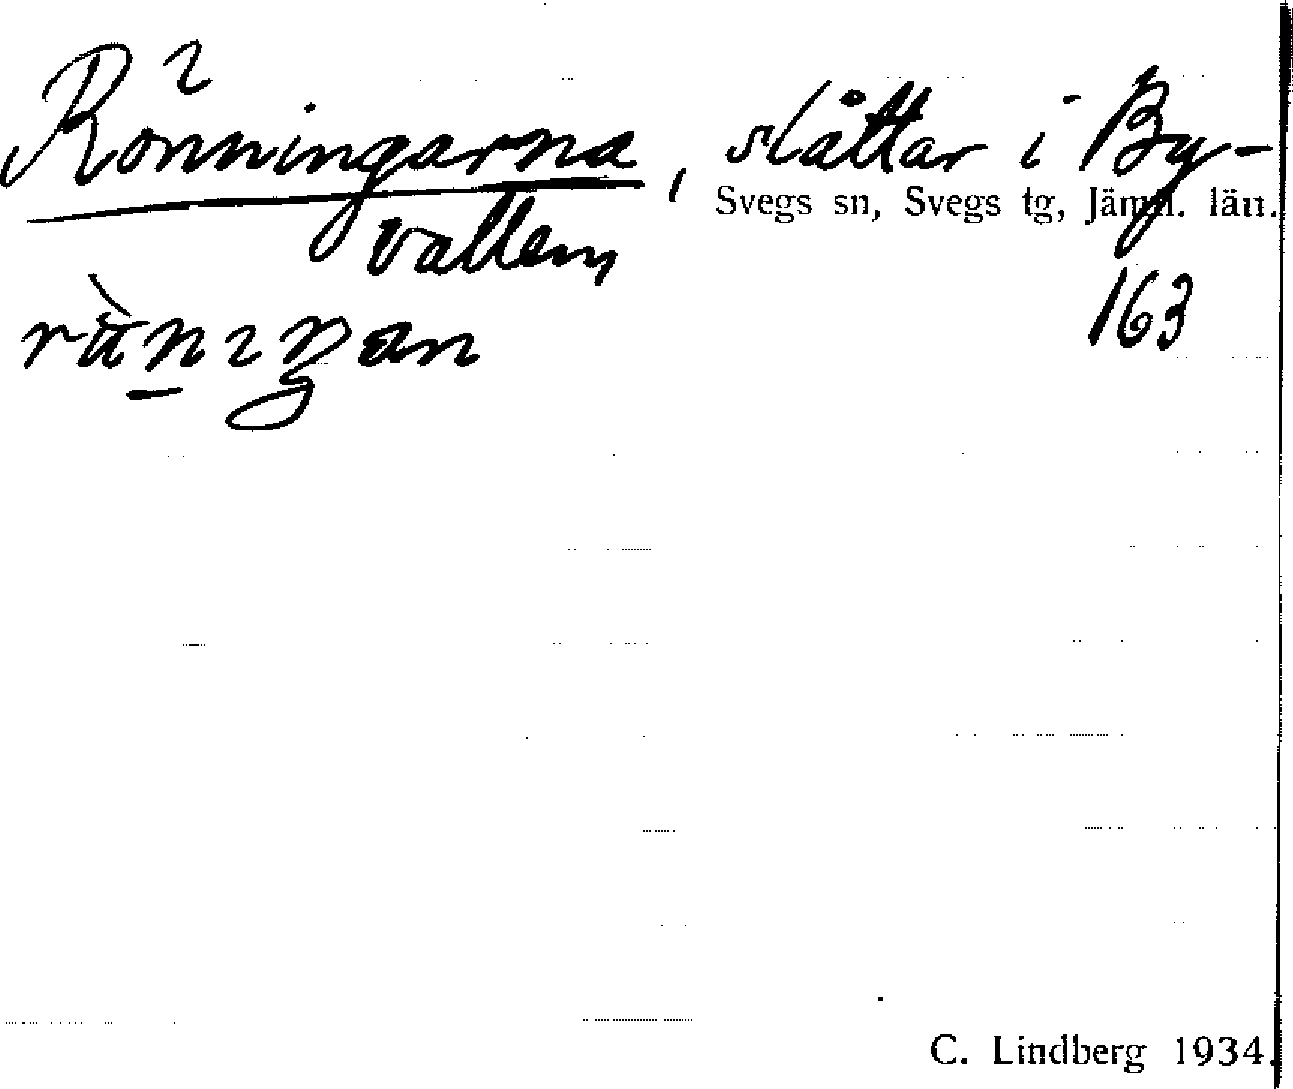 Rönningarna, slåttar i By-
Svegs sn, Svegs tg, Jämtl. län.
vallen,
163
C. Lindberg 1934.